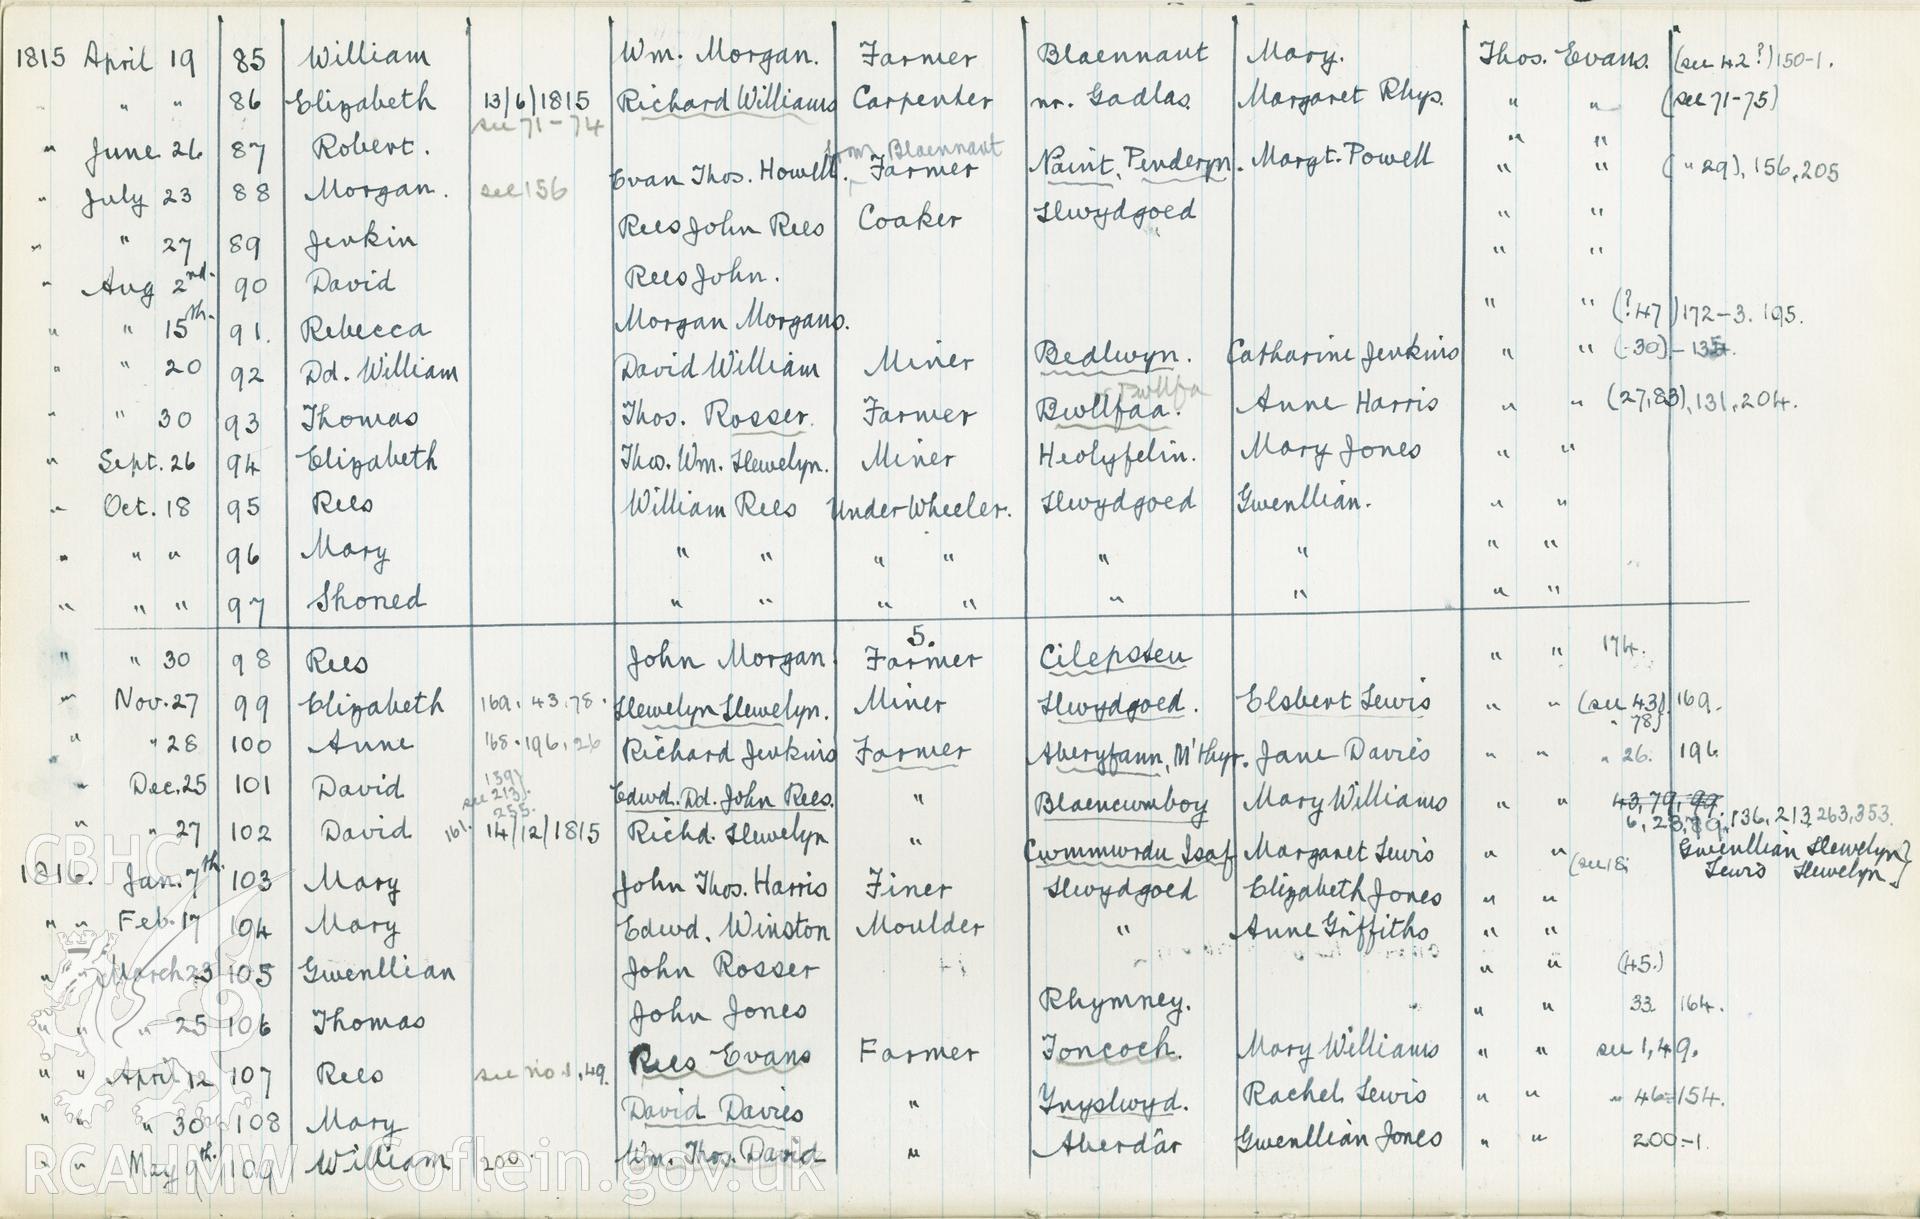 1815 April 19 85 William Wm. Morgan. Farmer Blaennant Mary. Thos. Evans. (see 42?) 150-1.
" " " 86 Elizabeth 13/6/1815 Richard Williams Carpenter nr. Gadlas. Margaret Rhys. " " (see 71-75)
see 71-74
" June 26 87 Robert. " "
from Blaennant
" July 23 88 Morgan. see 156 Evan Thos. Howell. Farmer Naint, Penderyn. Margt. Powell " " ( " 29), 156, 205
" " 27 89 Jenkin Rees John Rees Coaker Llwydgoed " "
" Aug 2nd. 90 David Rees John. " "
" " 15th. 91. Rebecca Morgan Morgans. " " (?47) 172-3. 195.
" " 20 92 Dd. William David William Miner Bedlwyn. Catharine Jenkins " " (-30)-135.
Pwllfa
" " 30 93 Thomas Thos. Rosser. Farmer Bwllfaa. Anne Harris " " (27,83), 131, 204.
" Sept. 26 94 Elizabeth Thos. Wm. Llewelyn. Miner Heolyfelin. Mary Jones " "
" Oct. 18 95 Rees William Rees Under Wheeler. Llwydgoed Gwenllian. " "
" " " 96 Mary " " " " " " " "
" " " 97 Shoned " " " " " " " "
5.
" " 30 98 Rees John Morgan Farmer Cilepsteu " " 174.
" Nov. 27 99 Elizabeth 169. 43. 78. Llewelyn Llewelyn. Miner Llwydgoed. Elsbert Lewis " " (see 43) 169.
" 78)
" " 28 100 Anne 168. 196. 26 Richard Jenkins Farmer Aberyfann, M'thyr. Jane Davies " " " 26. 196
139)
see 213).
255.
" Dec. 25 101 David Edwd. Dd. John Rees. " Blaencwmboy Mary Williams " " 43, 79, 99.
6, 23, 79, 89. 136, 213, 263, 353.
" " 27 102 David 161. 14/12/1815 Richd. Llewelyn " Cwmmwrdu Isaf Margaret Lewis " " (see 18. Gwenllian Llewelyn}
Lewis Llewelyn.}
1816. Jan. 7th. 103 Mary John Thos. Harris Finer Llwydgoed Elizabeth Jones " "
" " Feb. 17 104 Mary Edwd. Winston Moulder " Anne Griffiths " "
" " March 23 105 Gwenllian John Rosser " " (45.)
" " " 25 106 Thomas John Jones Rhymney. " " 33 164.
" " April 12 107 Rees see no. 1, 49. Rees Evans Farmer Toncoch. Mary Williams " " see 1, 49.
" " " 30 108 Mary David Davies " Ynyslwyd. Rachel Lewis " " " 46=154.
" " May 9th. 109 William 200 Wm. Thos. David " Aberdâr Gwenllian Jones " " 200-1
CBHC
RCAHMW Coflein.gov.uk